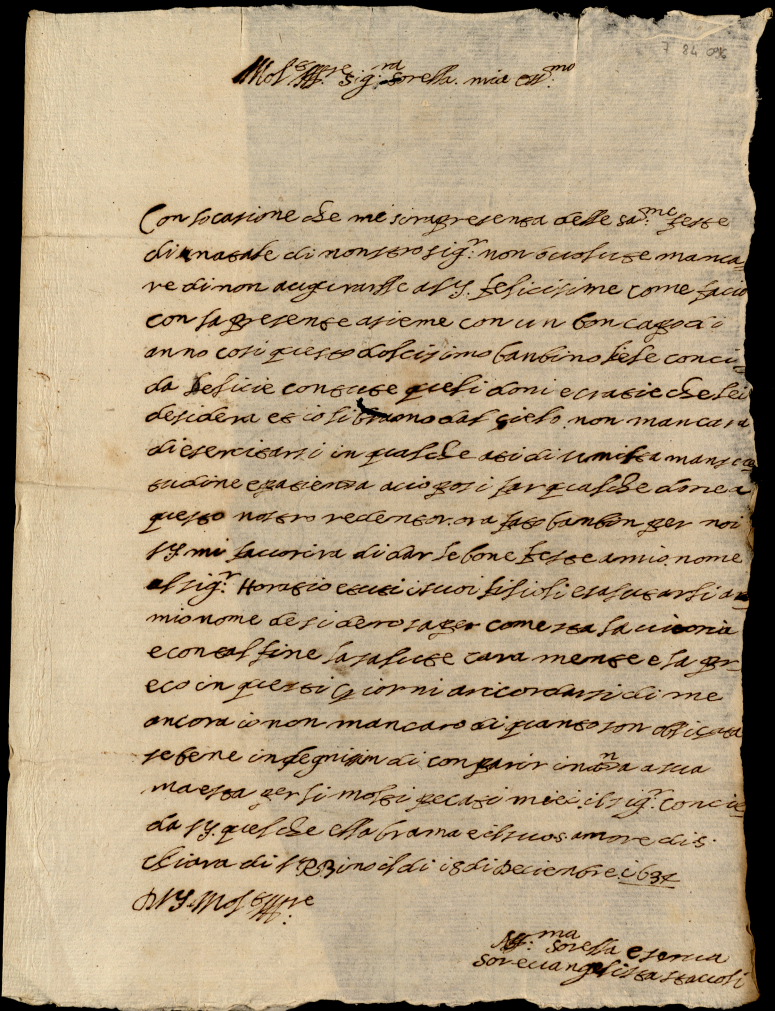 7 84 096
Molt Illre Sigra Sorella mia ossmo
Con locasione che mesirapresenta delle sanme feste
di natale di nonstro sigr: non ò volute manca
re di non augurarlle a V S. felicisime come facio
con la presente asieme con un bon capo di
anno cosi questo dolcisimo banbino lele conci
da felicie con tute queli doni e gratie che lei
desidera et io li bramo dal cielo. non mancara
di esercitarsi in qualche ati di umilta mansue
tudine e patienza acio posi far qualche done a
questo nostro redentor. ora fato banbin per noi
V S mi favorira di dar le bone feste a mio nome
al sigr Horatio e tuti i suoi filioli e salutarli a
mio nome desiderosa per come sta la
e con tal fine la salute cara mente e la pr
eco in questi Giorni a ricordarsi di me
ancora io non mancaro di quanto son obligata
se bene indegnisim di conparir inanza a sua
maesta per li molti pecati miei. il sigr. conci
da V S. quel che ella brama e il suo s. amore di s.
chiara di URBino il di 18 di Deciembre 1634
D V S. Molt Illre
Affma sorella e serva
Sor evangelista staccoli